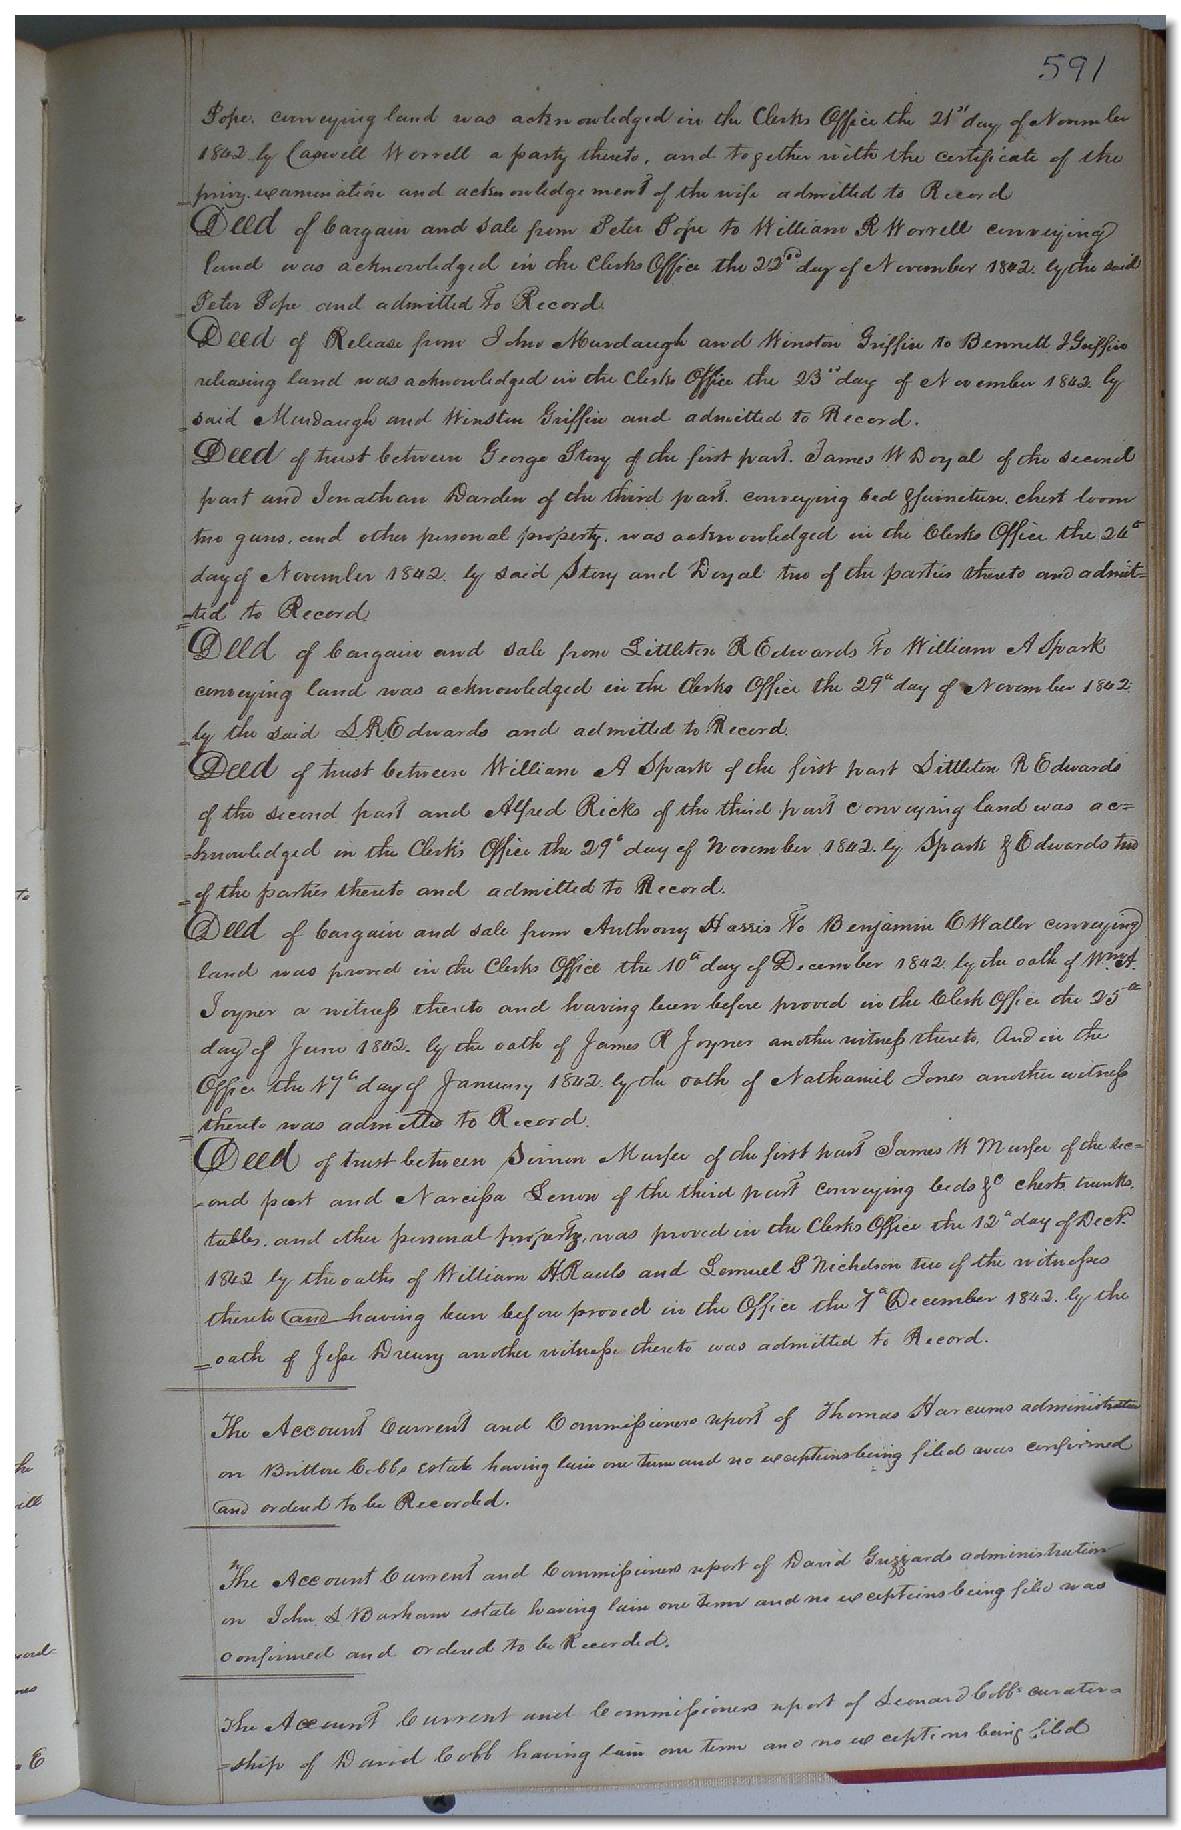 591
Pope. conveying land was acknowledged in the Clerks Office the 21st day of November
1842 by Caswell Worrell a party thereto, and together with the certificate of the
privy examination and acknowledgement of the wife admitted to Record
Deed of bargain and sale from Peter Pope to William R Worrell conveying
land was acknowledged in the Clerks Office the 22nd day of November 1842. by the said
Peter Pope and admitted to Record.
Deed of Release from John Murdaugh and Winston Griffin to Bennett J Griffin
releasing land was acknowledged in the Clerks Office the 23rd day of November 1842 by
said Murdaugh and Winston Griffin and admitted to Record.
Deed of trust between George Story of the first part. James W Doyal of the second
part and Jonathan Darden of the third part. conveying bed & furniture. chest loom
two guns, and other personal property. was acknowledged in the Clerks Office the 24th
day of November 1842. by said Story and Doyal two of the parties thereto and admit=
=ted to Record
Deed of bargain and sale from Littleton R Edwards to William A Spark
conveying land was acknowledged in the Clerks Office the 29th day of November 1842
by the said L.R. Edwards and admitted to Record.
Deed of trust between William A Spark of the first part Littleton R Edwards
of the second part and Alfred Ricks of the third part conveying land was ac=
=knowledged in the Clerk's Office the 29th day of November 1842. by Spark & Edwards two
of the parties thereto and admitted to Record.
Deed of bargain and sale from Anthony Harris to Benjamin C Waller conveying
land was proved in the Clerks Office the 10th day of December 1842 by the oath of Wm A.
Joyner a witness thereto and having been before proved in the Clerk Office the 25th
day of June 1842. by the oath of James R Joyner another witness thereto, And in the
Office the 17th day of January 1842 by the oath of Nathaniel Jones another witness
thereto was admitted to Record.
Deed of trust between Simon Murfee of the first part James W Murfee of the sec=
=ond part and Narcissa Lenow of the third part conveying beds &c chests, trunks,
tables, and other personal property, was proved in the Clerks Office the 12th day of Decr.
1842 by the oaths of William H Rauls and Lemuel P Nicholson two of the witnesses
thereto and having been before proved in the Office the 7th December 1842. by the
oath of Jesse Drewry another witness thereto was admitted to Record.
The Account Current and Commissioners report of Thomas Harcums administration
on Britton Cobbs estate having lain one term and no exceptions being filed was confirmed
and ordered to be Recorded.
The Account Current and Commissioners report of David Guzzards administration
on John S Barham estate having lain one term and no exceptions being filed was
confirmed and ordered to be Recorded.
The Account Current and Commissioners report of Leonard Cobbs curator=
=ship of David Cobb having lain one term and no exceptions being filed